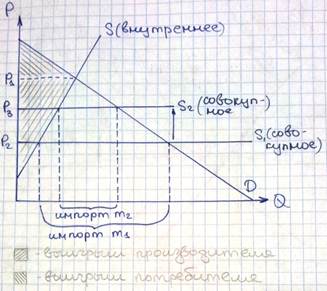 P
S(внутреннее)
P₁
P₃
S₂(совокуп-
ное)
P₂
S₁(сово-
купное)
D
Q
импорт m₂
импорт m₁
- выигрыш производителя
- выигрыш потребителя